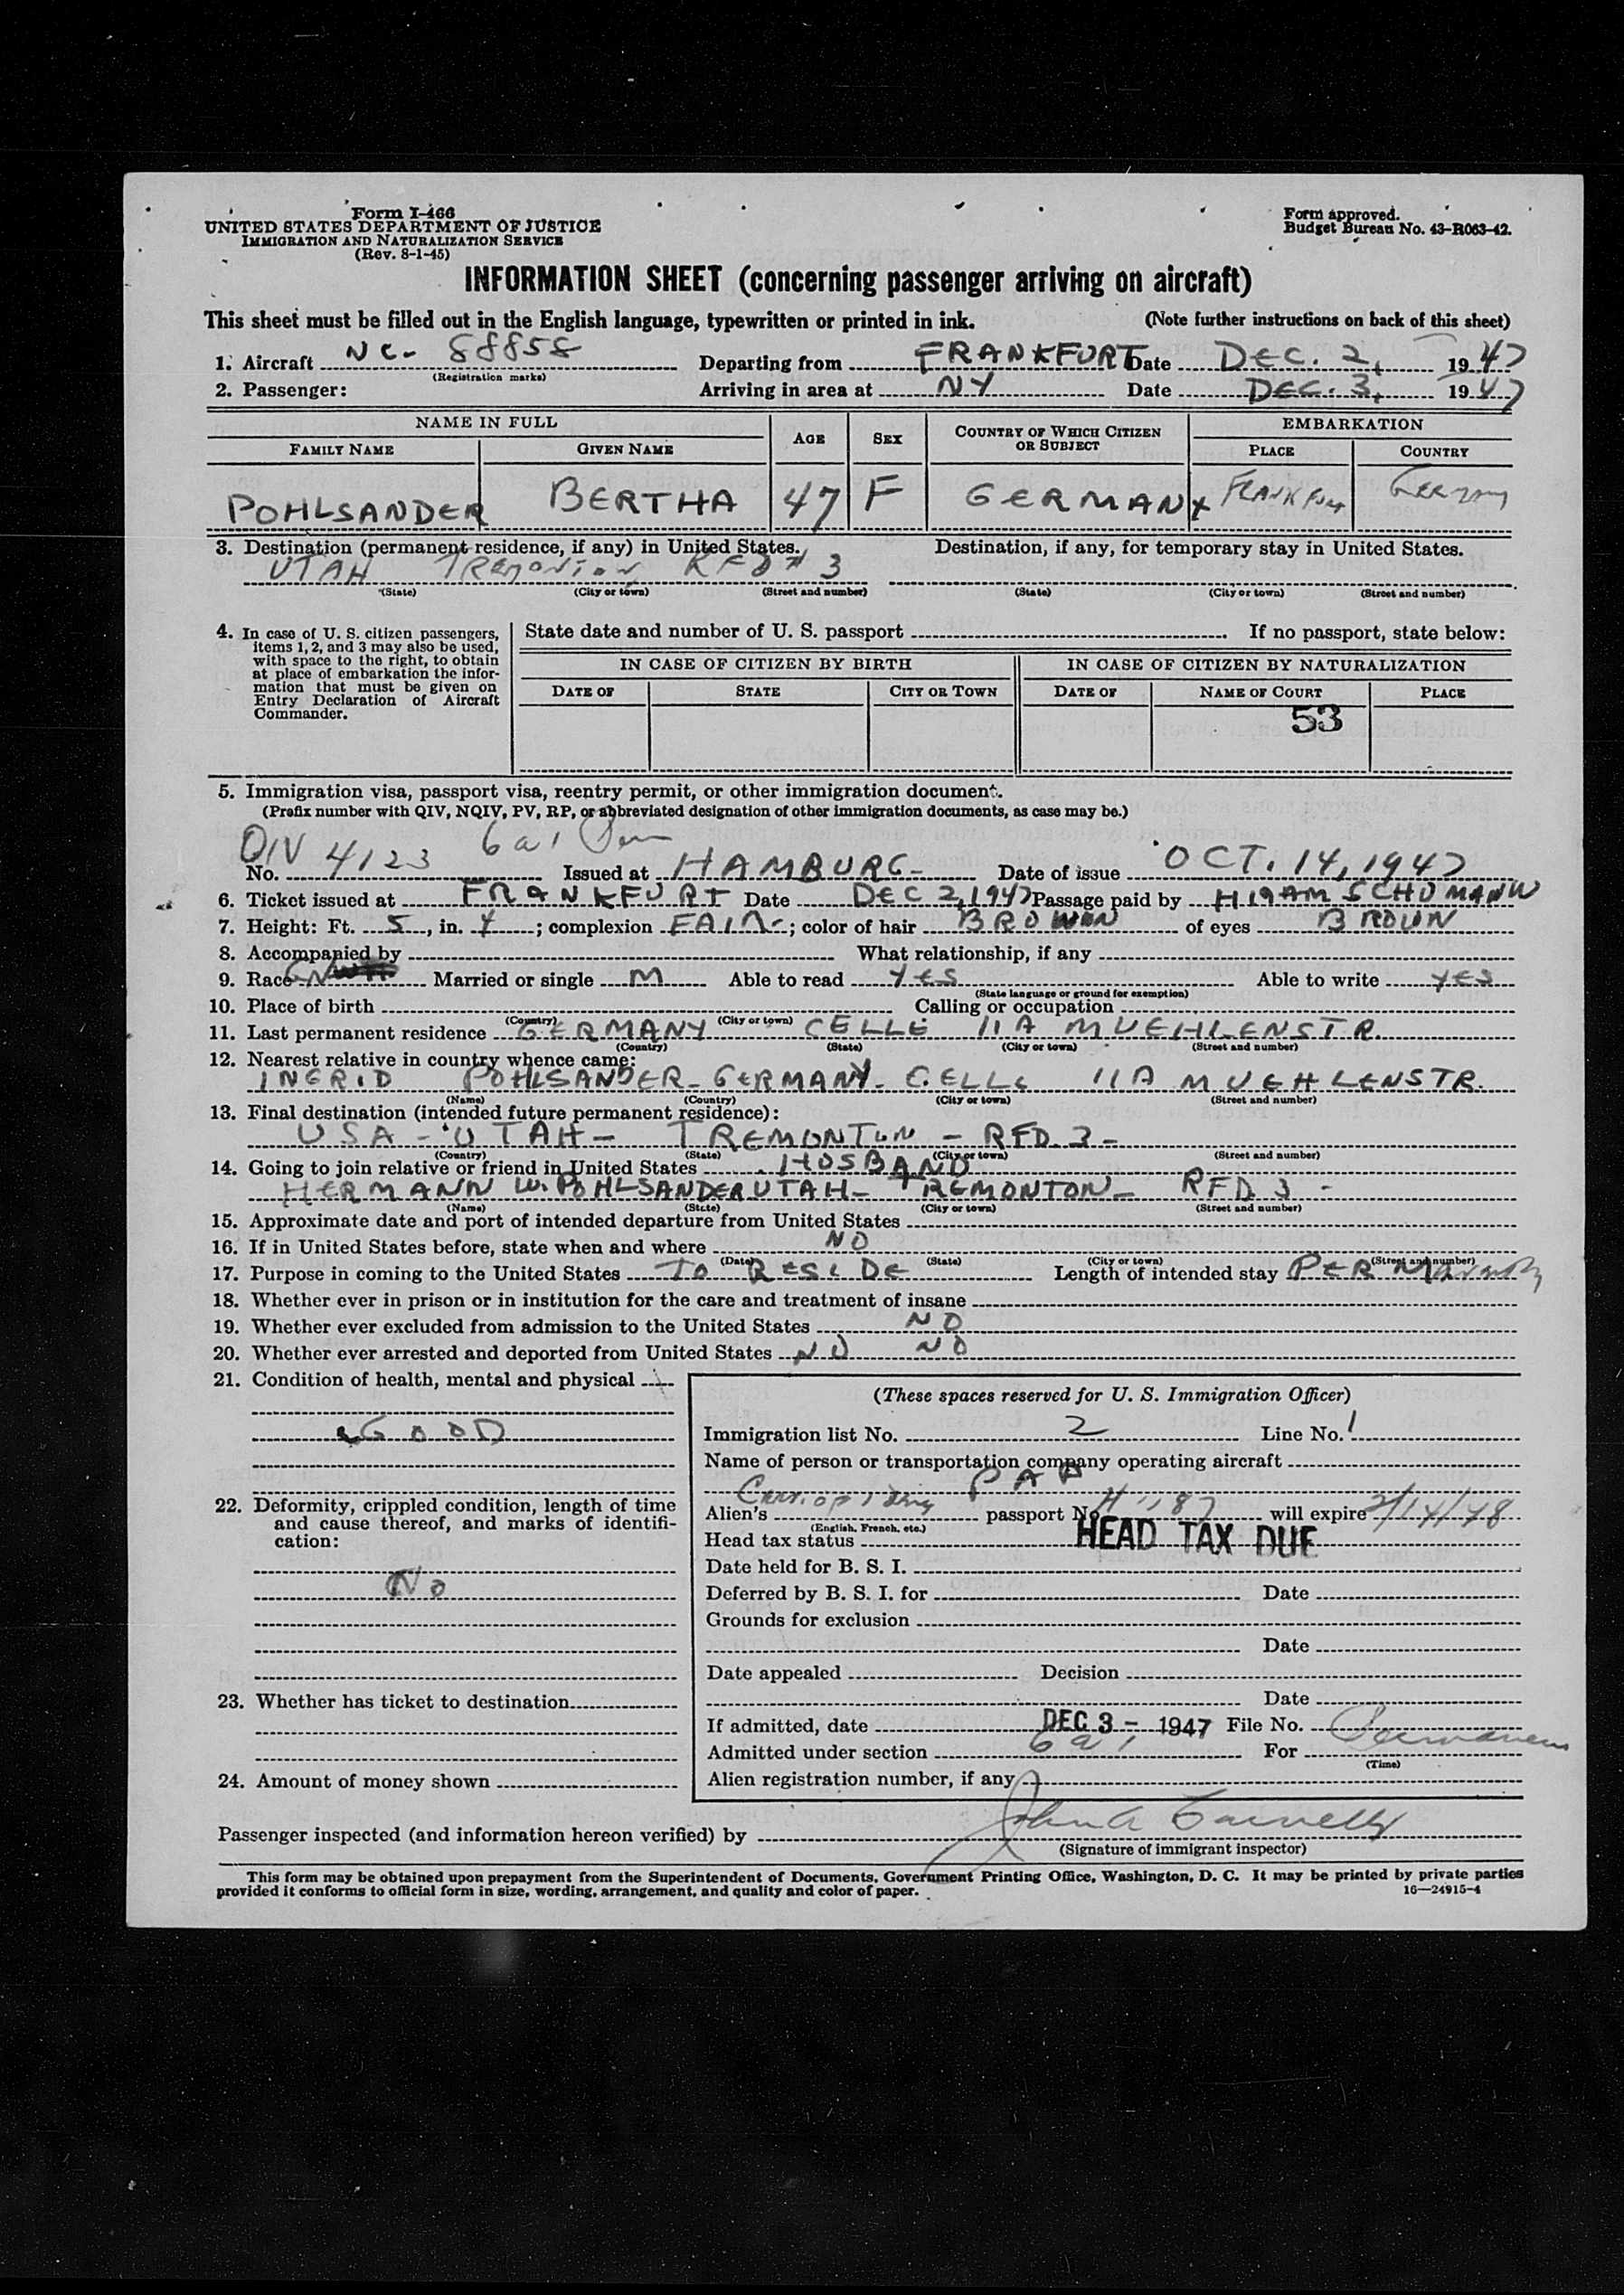 Form I-466
UNITED STATES DEPARTMENT OF JUSTICE
IMMIGRATION AND NATURALIZATION SERVICE
(Rev. 8-1-45)
Form approved.
Budget Bureau No. 43-R063-42.
INFORMATION SHEET (concerning passenger arriving on aircraft)
This sheet must be filled out in the English language, typewritten or printed in ink. (Note further instructions on back of this sheet)
1. Aircraft NC- 88858 Departing from FRANKFURT Date DEC. 2, 1947
(Registration marks)
2. Passenger: Arriving in area at NY Date DEC. 3, 1947
NAME IN FULL AGE SEX COUNTRY OF WHICH CITIZEN OR SUBJECT EMBARKATION
FAMILY NAME GIVEN NAME PLACE COUNTRY
POHLSANDER BERTHA 47 F GERMANY FRANKFURT GERMANY
3. Destination (permanent residence, if any) in United States. Destination, if any, for temporary stay in United States.
UTAH TREMONTON RFD # 3
(State) (City or town) (Street and number) (State) (City or town) (Street and number)
4. In case of U. S. citizen passengers, items 1, 2, and 3 may also be used, with space to the right, to obtain at place of embarkation the information that must be given on Entry Declaration of Aircraft Commander.
State date and number of U. S. passport If no passport, state below:
IN CASE OF CITIZEN BY BIRTH IN CASE OF CITIZEN BY NATURALIZATION
DATE OF STATE CITY OR TOWN DATE OF NAME OF COURT PLACE
53
5. Immigration visa, passport visa, reentry permit, or other immigration document.
(Prefix number with QIV, NQIV, PV, RP, or abbreviated designation of other immigration documents, as case may be.)
6a1
No. QIV 4123 Issued at HAMBURG- Date of issue OCT. 14, 1947
6. Ticket issued at FRANKFURT Date DEC 2, 1947 Passage paid by SCHUMANN
7. Height: Ft. 5, in. 4; complexion FAIR-; color of hair BROWN of eyes BROWN
8. Accompanied by What relationship, if any
9. Race Married or single M Able to read YES Able to write YES
(State language or ground for exemption)
10. Place of birth Calling or occupation
(Country) (City or town)
11. Last permanent residence GERMANY CELLE 11A MUEHLENSTR.
(Country) (State) (City or town) (Street and number)
12. Nearest relative in country whence came:
INGRID POHLSANDER- GERMANY- CELLE 11A MUEHLENSTR.
(Name) (Country) (City or town) (Street and number)
13. Final destination (intended future permanent residence):
USA - UTAH - TREMONTON - RFD. 3 -
(Country) (State) (City or town) (Street and number)
14. Going to join relative or friend in United States HUSBAND
HERMANN W. POHLSANDER UTAH- TREMONTON- RFD. 3 -
(Name) (State) (City or town) (Street and number)
15. Approximate date and port of intended departure from United States
16. If in United States before, state when and where NO
(Date) (State) (City or town) (Street and number)
17. Purpose in coming to the United States TO RESIDE Length of intended stay PERMANENTLY
18. Whether ever in prison or in institution for the care and treatment of insane
19. Whether ever excluded from admission to the United States NO
20. Whether ever arrested and deported from United States NO NO
21. Condition of health, mental and physical
GOOD
22. Deformity, crippled condition, length of time and cause thereof, and marks of identification:
No
23. Whether has ticket to destination
24. Amount of money shown
(These spaces reserved for U. S. Immigration Officer)
Immigration list No. 2 Line No. 1
Name of person or transportation company operating aircraft
P A A
Alien's passport No. will expire 2/14/48
(English, French, etc.)
Head tax status HEAD TAX DUE
Date held for B. S. I.
Deferred by B. S. I. for Date
Grounds for exclusion
Date
Date appealed Decision
Date
If admitted, date DEC 3 - 1947 File No.
Admitted under section 6a1 For Permanent
(Time)
Alien registration number, if any
Passenger inspected (and information hereon verified) by John A
(Signature of immigrant inspector)
This form may be obtained upon prepayment from the Superintendent of Documents, Government Printing Office, Washington, D. C. It may be printed by private parties
provided it conforms to official form in size, wording, arrangement, and quality and color of paper. 16—24915-4